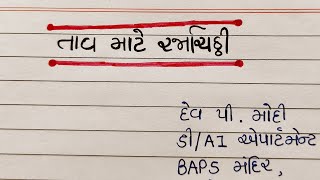 તાવ માટે રજાચિઠ્ઠી
દેવ પી. મોદી
ડી/AI એપાર્ટમેન્ટ
BAPS મંદિર,